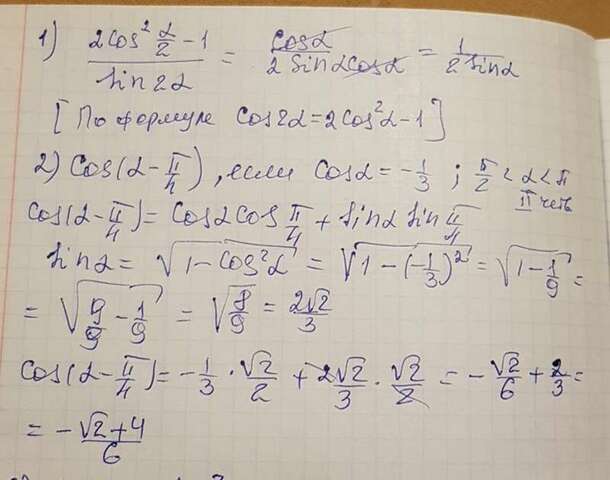 1) (2cos² α/2 - 1)/(sin2α) = cosα/(2sinαcosα) = 1/(2sinα)
[По формуле cos2α=2cos²α-1]
2) cos(α-π/4), если cosα=-1/3; π/2<α<π
II четв
cos(α-π/4)=cosαcos π/4 + sinα sin π/4
sinα = √(1-cos²α) = √(1-(-1/3)²) = √(1-1/9) =
= √(9/9 - 1/9) = √(8/9) = 2√2/3
cos(α-π/4)=-1/3 · √2/2 + 2√2/3 · √2/2 = -√2/6 + 2/3 =
= (-√2+4)/6